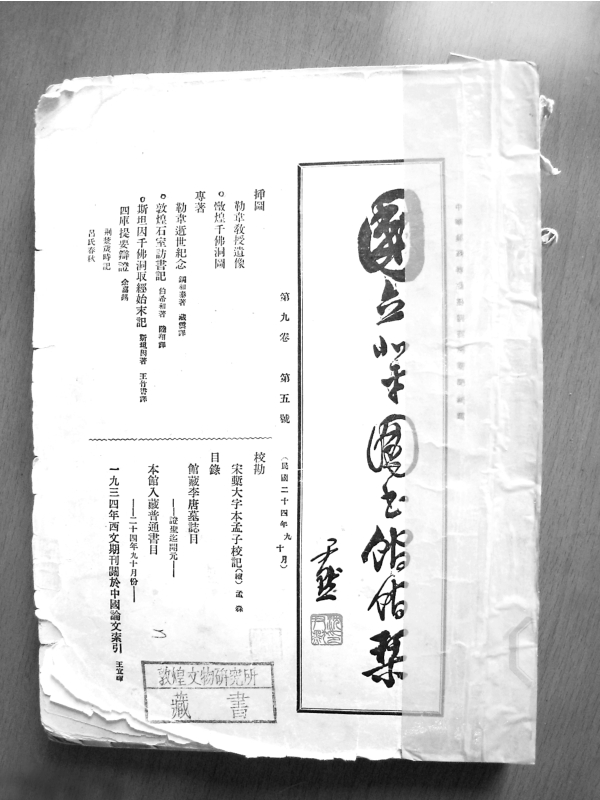 國立北平圖書館館刊
尹默
第九卷 第五號
(民國二十四年九、十月)
插圖
勒韋教授遺像
敦煌千佛洞圖
專著
勒韋逝世紀念 鋼和泰著 臧雲譯
敦煌石室訪書記 伯希和著 陸翔譯
斯坦因千佛洞取經始末記 斯坦因著 王竹書譯
四庫提要辯證 余嘉錫
荊楚歲時記
呂氏春秋
校勘
宋槧大字本孟子校記(續) 孟森
目錄
館藏李唐墓誌目
——證聖迄開元——
本館入藏普通書目
——二十四年九十月份——
一九三四年西文期刊關於中國論文索引 王宜暉
敦煌文物研究所
藏書